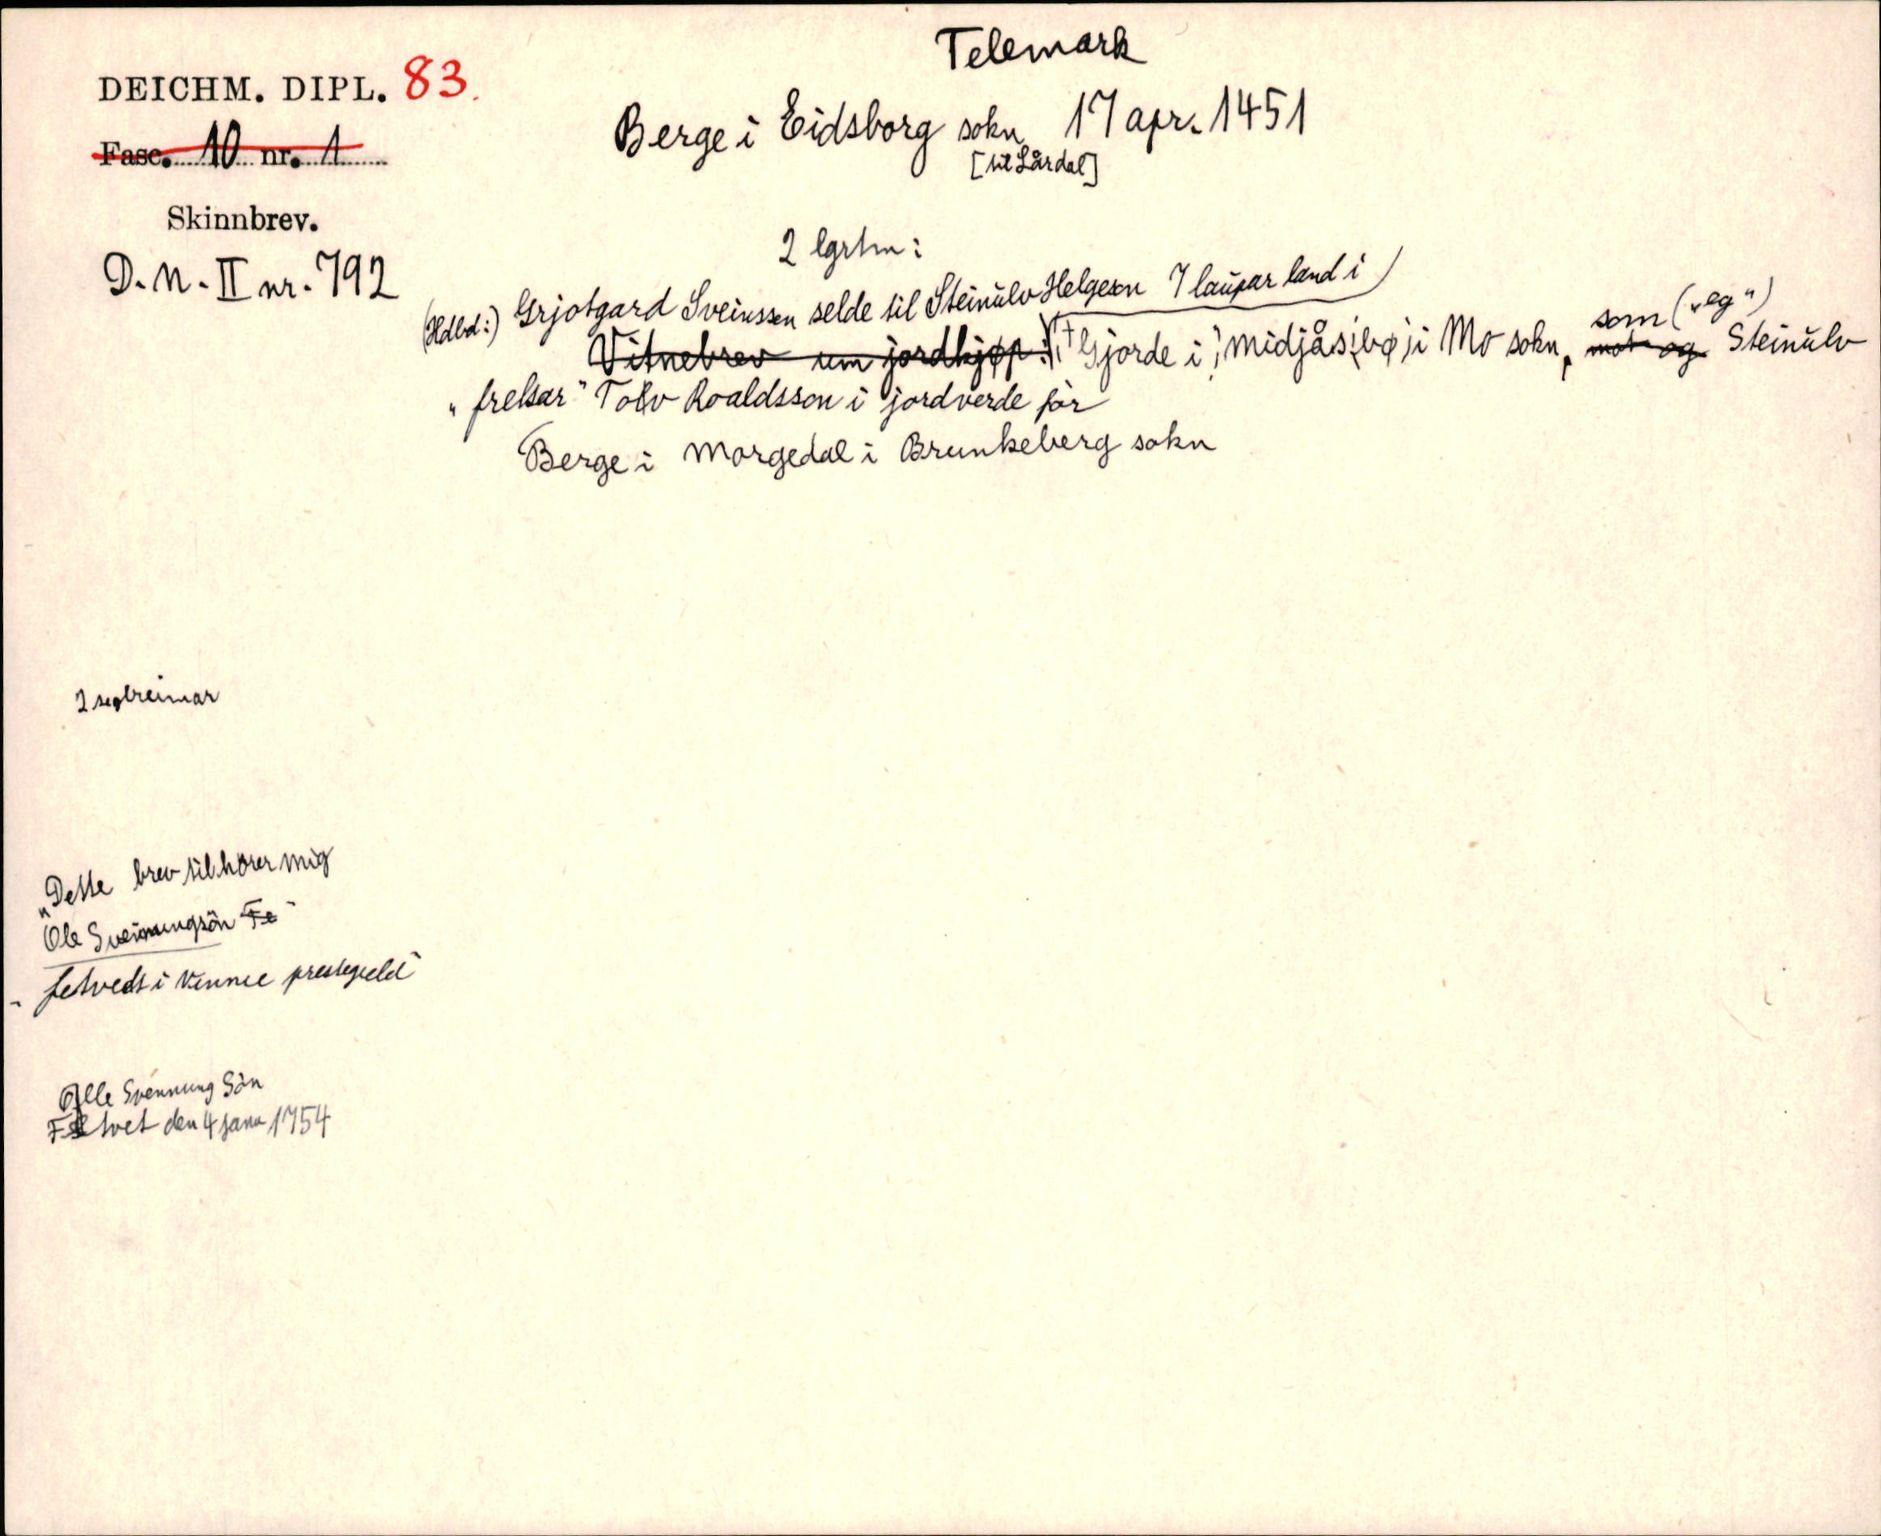 Telemark
DEICHM. DIPL. 83.
Fasc. 10 nr. 1
Berge i Eidsborg sokn 17 apr. 1451
[til Lårdal]
Skinnbrev.
D. N. II nr. 792
2 lgrtm:
(Hdbd:) Grjotgard Sveinsson selde til Steinulv Helgeson 7 laupar land i
Vitnebrev um jordkjøp: Gjorde i Midjåsbø i Mo sokn, mot og som ("eg") Steinulv
"frelsar" Tolv Roaldsson i jordverde for
Berge i Morgedal i Brunkeberg sokn
2 seglreimar
"Dette brev tilhører mig
Ole Sveinungsön Fe"
"fetvedt i Vinnie prestegield"
Olle Svennung Sön
Fetvet den 4 janu 1754